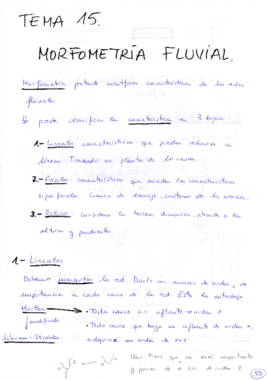 TEMA 15.
MORFOMETRÍA FLUVIAL.
Morfometría pretende cuantificar características de la redes
fluviales.
Se puede clasificar la característica en 3 tipos:
1.- Lineales: características que pueden reducirse a
líneas. Trazado en planta de los cauces
2.- Areales: características que miden la características
superficiales. Cuenca de drenaje, contorno de la cuenca.
3.- Relieve: considera la tercera dimensión, atiende a la
altura y pendiente
1.- Lineales
Debemos jerarquizar la red. Darle un número de orden, de
importancia a cada cauce de la red. Esto lo introdujo
Horton → Todo cauce sin afluente → orden 1
modificado → Todo cauce que tenga un afluente de orden x,
adquiere un orden de x+1
- Strahler
Uno tiene que ser más importante
y pasar de a ser de orden 2
50